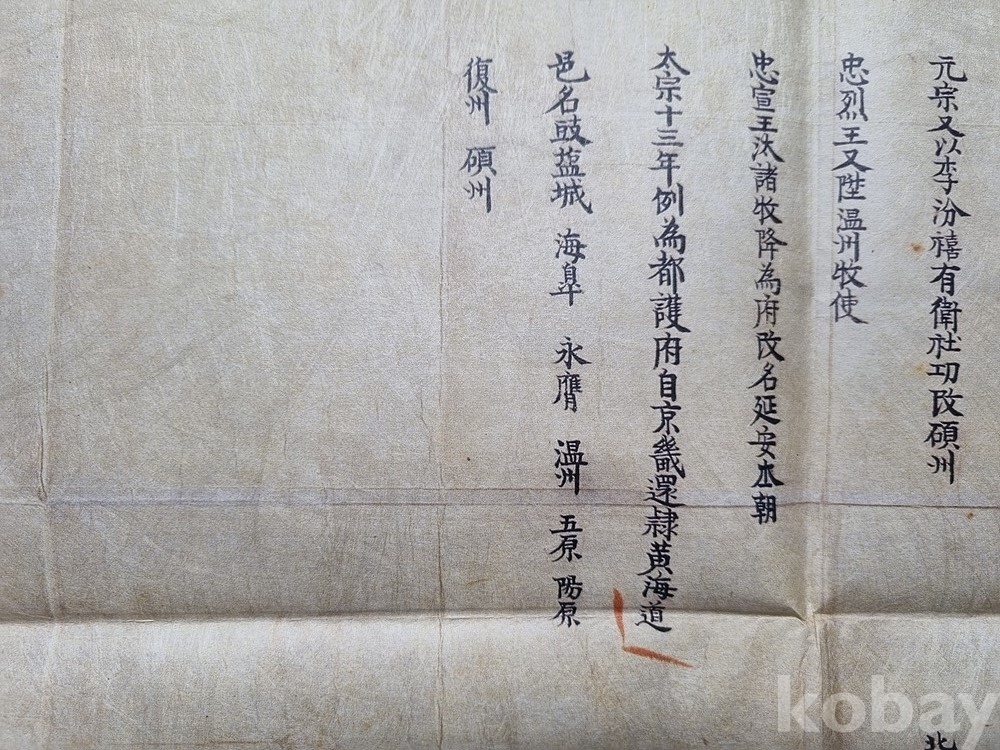 元宗又以李汾禧有衛社功改碩州
忠烈王又陞温州牧使
忠宣王汰諸牧降為府改名延安本朝
太宗十三年例為都護府自京畿還隷黄海道
邑名豉盐城 海臯 永膺 温州 五原 陽原
復州 碩州
北
kobay